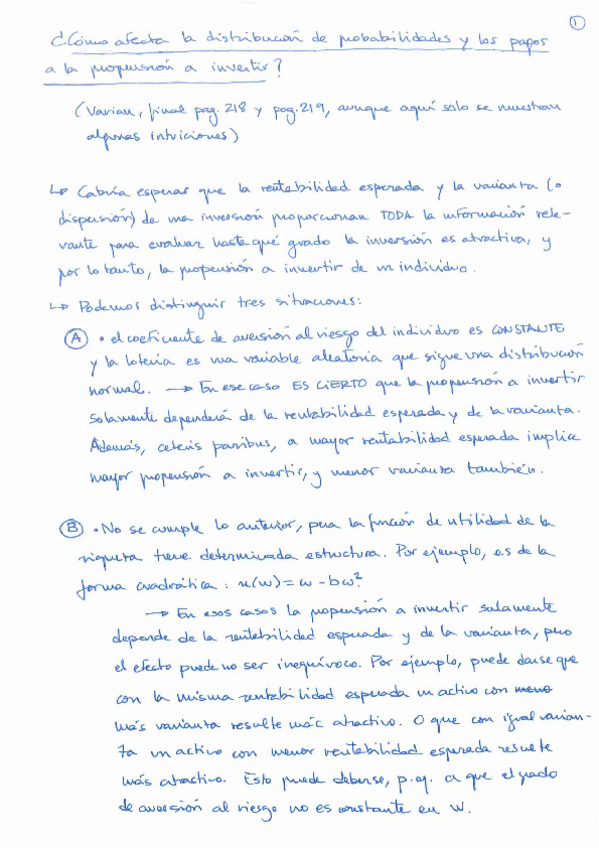 1
¿Cómo afecta la distribución de probabilidades y los pagos
a la propensión a invertir?
(Varian, final pag. 218 y pag. 219, aunque aquí solo se muestran
algunas intuiciones)
↳ Cabría esperar que la rentabilidad esperada y la varianza (o
dispersión) de una inversión proporcionan TODA la información rele-
vante para evaluar hasta qué grado la inversión es atractiva, y
por lo tanto, la propensión a invertir de un individuo.
↳ Podemos distinguir tres situaciones:
A • el coeficiente de aversión al riesgo del individuo es CONSTANTE
y la lotería es una variable aleatoria que sigue una distribución
normal. → En ese caso ES CIERTO que la propensión a invertir
solamente dependerá de la rentabilidad esperada y de la varianza.
Además, ceteris paribus, a mayor rentabilidad esperada implica
mayor propensión a invertir, y menor varianza también.
B • No se cumple lo anterior, pero la función de utilidad de la
riqueza tiene determinada estructura. Por ejemplo, es de la
forma cuadrática: u(w) = w - bw².
→ En esos casos la propensión a invertir solamente
depende de la rentabilidad esperada y de la varianza, pero
el efecto puede no ser inequívoco. Por ejemplo, puede darse que
con la misma rentabilidad esperada un activo con meno
más varianza resulte más atractivo. O que con igual varian-
za un activo con menor rentabilidad esperada resulte
más atractivo. Esto puede deberse, p.ej. a que el grado
de aversión al riesgo no es constante en W.